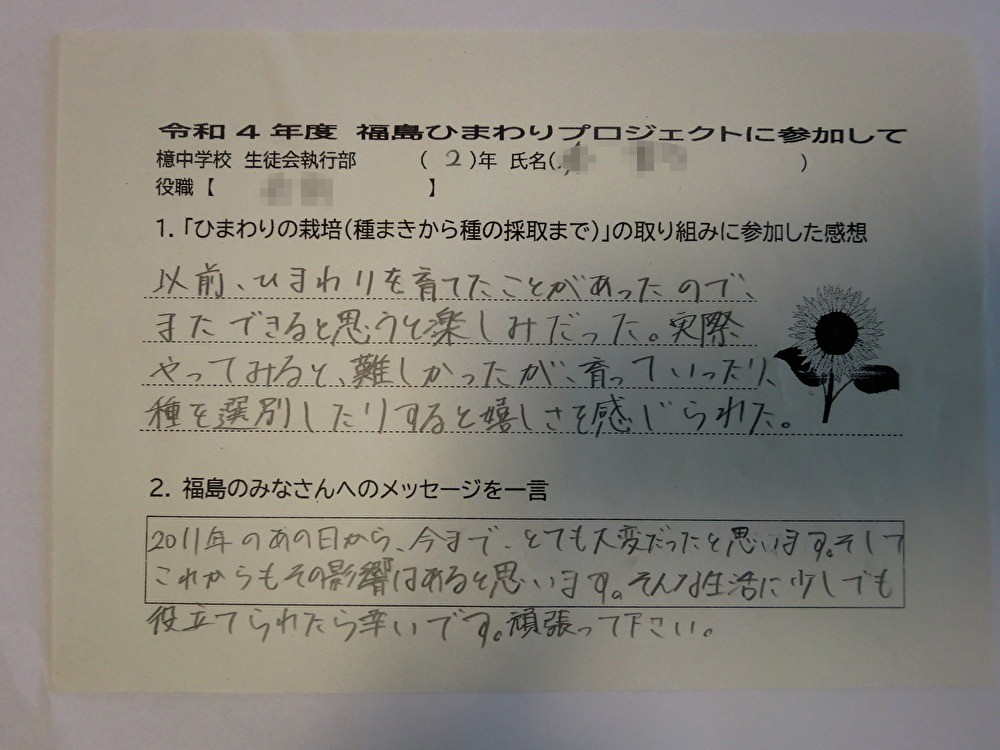 令和4年度 福島ひまわりプロジェクトに参加して
檍中学校 生徒会執行部 (2)年 氏名( )
役職【 】
1.「ひまわりの栽培(種まきから種の採取まで)」の取り組みに参加した感想
以前、ひまわりを育てたことがあったので、
またできると思うと楽しみだった。実際
やってみると、難しかったが、育っていったり、
種を選別したりすると嬉しさを感じられた。
2. 福島のみなさんへのメッセージを一言
2011年のあの日から、今まで、とても大変だったと思います。そして
これからもその影響はあると思います。そんな生活に少しでも
役立てられたら幸いです。頑張って下さい。